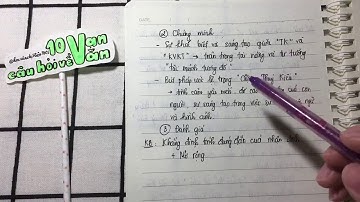 10 Vạn
câu hỏi về Văn
② Chứng minh
- Sự khác biệt và sáng tạo giữa "TK" và
"KVKT" → trân trọng tài năng và tư tưởng
- Bút pháp ước lệ trong "Kiều"
→ tình cảm yêu mến, đề cao của con
người sự sáng tạo trong việc sử ngữ
và hình ảnh.
③ Đánh giá
KB: Khẳng định tính đúng đắn của nhận định
+ Mở rộng